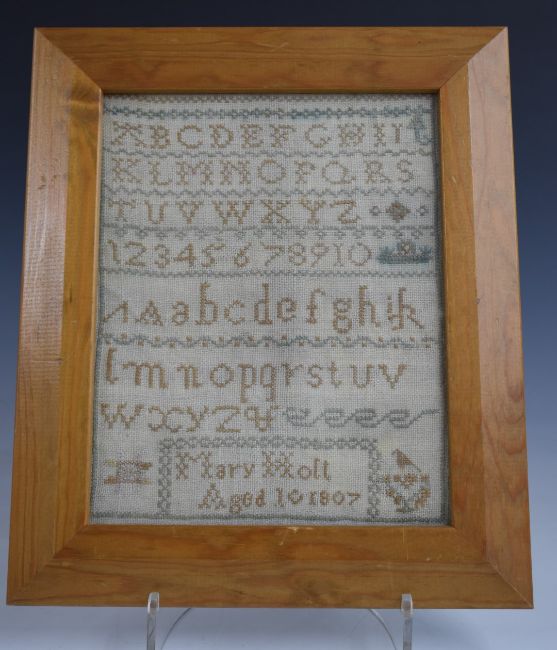 ABCDEFGHIJ
KLMNOPQRS
TUVWXYZ
12345678910
AAabcdefghijk
lmnopqrstuv
WXYZ
Mary Holt
Aged 10 1807